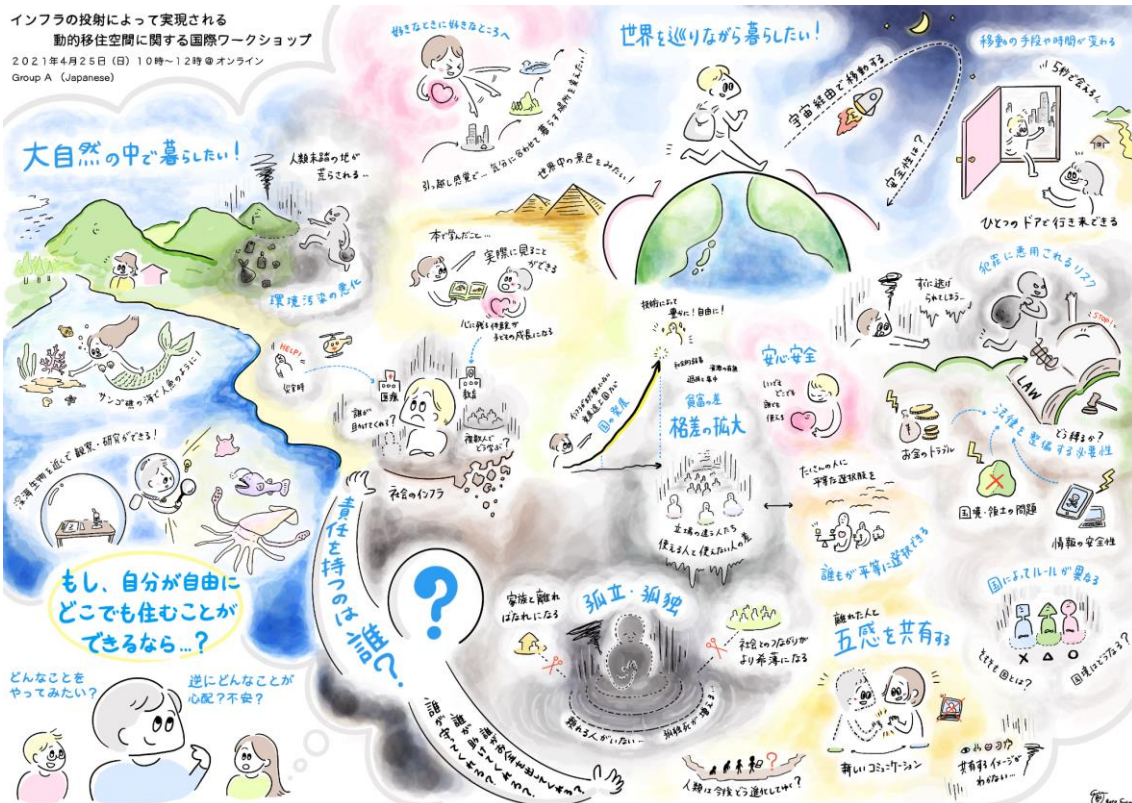 インフラの投射によって実現される
動的移住空間に関する国際ワークショップ
2021年4月25日（日）10時〜12時@オンライン
Group A （Japanese）
大自然の中で暮らしたい！
人類未踏の地が
荒らされる…
環境汚染の悪化
サンゴ礁の海で人魚のように！
深海生物を近くで観察・研究ができる！
もし、自分が自由に
どこでも住むことが
できるなら…？
どんなことを
やってみたい？
逆にどんなことが
心配？不安？
好きなときに好きなところへ
引っ越し感覚で…気分に合わせて暮らす場所を変えたい！
世界中の景色をみたい！
本で学んだこと…
実際に見ること
ができる
心に残る体験が
子どもの成長になる
HELP!
災害時
医療
教育
誰が
助けてくれる？
複数人で
どう学ぶ？
社会のインフラ
責任を持つのは誰？
誰がお金を出してくれる？
誰が助けてくれる？
誰が守ってくれる？
?
世界を巡りながら暮らしたい！
宇宙経由で移動する
安全性は？
移動の手段や時間が変わる
5秒で会える！
ひとつのドアで行き来できる
技術によって
豊かに！自由に！
国の発展
貧富の差
格差の拡大
立場の違う人たち
使える人と使えない人の差
安心安全
いつでも
どこでも
誰でも
使える
たくさんの人に
平等な選択肢を
誰もが平等に選択できる
すぐに逃げ
られてしまう…
犯罪に悪用されるリスク
STOP!
LAW
どう縛るか？
法律を整備する必要性
お金のトラブル
国境・領土の問題
情報の安全性
国によってルールが異なる
そもそも国とは？
国境はどうなる？
孤立・孤独
家族と離れ
ばなれになる
社会とのつながりが
より希薄になる
頼れる人がいない…
孤独死が増える…
離れた人と
五感を共有する
新しいコミュニケーション
共有するイメージが
わかない…
人類は今後どう進化してゆく？